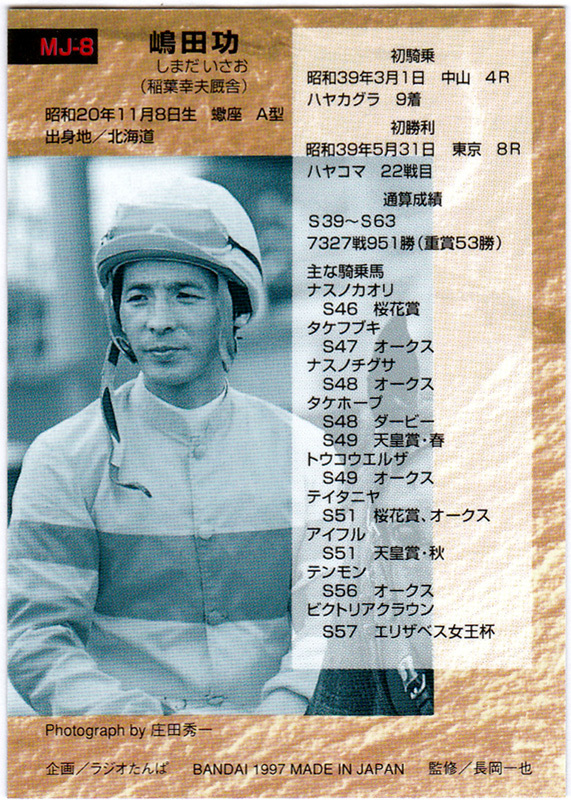 MJ-8
嶋田功
しまだいさお
(稲葉幸夫厩舎)
昭和20年11月8日生 蠍座 A型
出身地／北海道
初騎乗
昭和39年3月1日 中山 4R
ハヤカグラ 9着
初勝利
昭和39年5月31日 東京 8R
ハヤコマ 22戦目
通算成績
S39〜S63
7327戦951勝(重賞53勝)
主な騎乗馬
ナスノカオリ
S46 桜花賞
タケフブキ
S47 オークス
ナスノチグサ
S48 オークス
タケホープ
S48 ダービー
S49 天皇賞・春
トウコウエルザ
S49 オークス
テイタニヤ
S51 桜花賞、オークス
アイフル
S51 天皇賞・秋
テンモン
S56 オークス
ビクトリアクラウン
S57 エリザベス女王杯
Photograph by 庄田秀一
企画／ラジオたんぱ BANDAI 1997 MADE IN JAPAN 監修／長岡一也